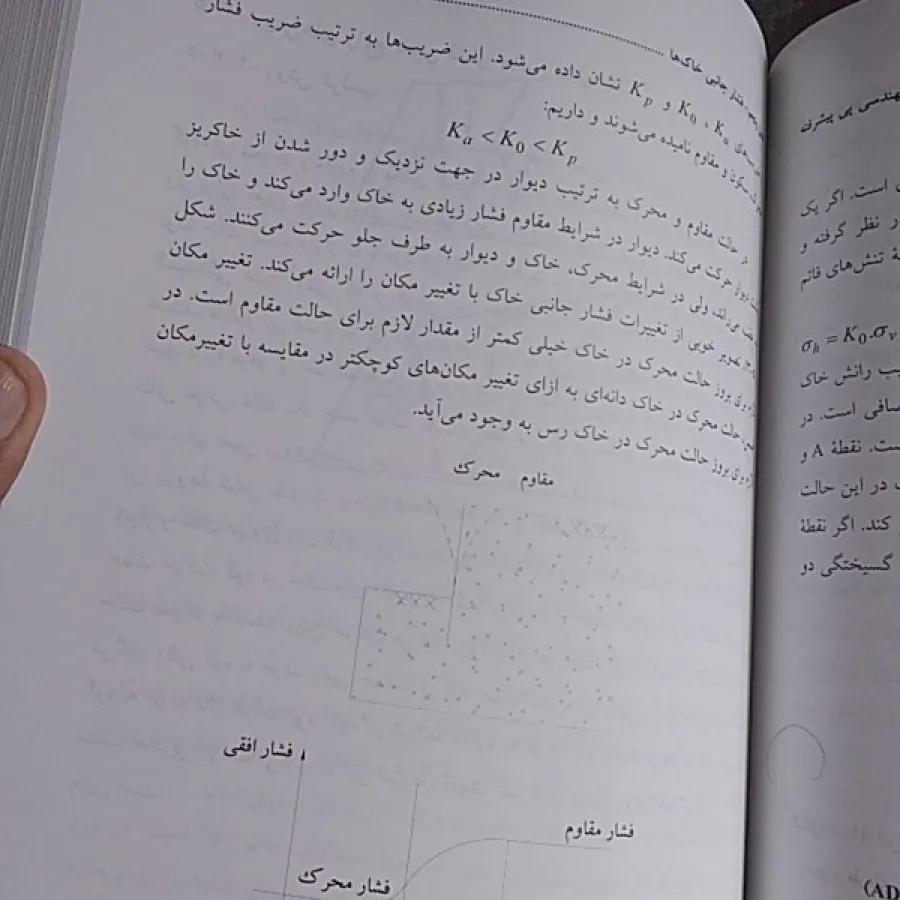 فشار جانبی خاک‌ها
K_a ، K_0 و K_p نشان داده می‌شود. این ضریب‌ها به ترتیب ضریب فشار
سکون و مقاوم نامیده می‌شوند و داریم:
K_a < K_0 < K_p
در حالت مقاوم و محرک به ترتیب دیوار در جهت نزدیک و دور شدن از خاکریز
حرکت می‌کند. دیوار در شرایط مقاوم فشار زیادی به خاک وارد می‌کند و خاک را
می‌راند، ولی در شرایط محرک، خاک و دیوار به طرف جلو حرکت می‌کنند. شکل
تصویر خوبی از تغییرات فشار جانبی خاک با تغییر مکان را ارائه می‌کند. تغییر مکان
برای بروز حالت محرک در خاک خیلی کمتر از مقدار لازم برای حالت مقاوم است. در
حالت محرک در خاک دانه‌ای به ازای تغییر مکان‌های کوچکتر در مقایسه با تغییرمکان
برای بروز حالت محرک در خاک رس به وجود می‌آید.
مقاوم محرک
فشار افقی
فشار مقاوم
فشار محرک
مهندسی پی پیشرفته
است. اگر یک
در نظر گرفته و
تنش‌های قائم
σ_h = K_0.σ_v
رانش خاک
است. در
است. نقطهٔ A و
در این حالت
کند. اگر نقطهٔ
گسیختگی دو
(AD